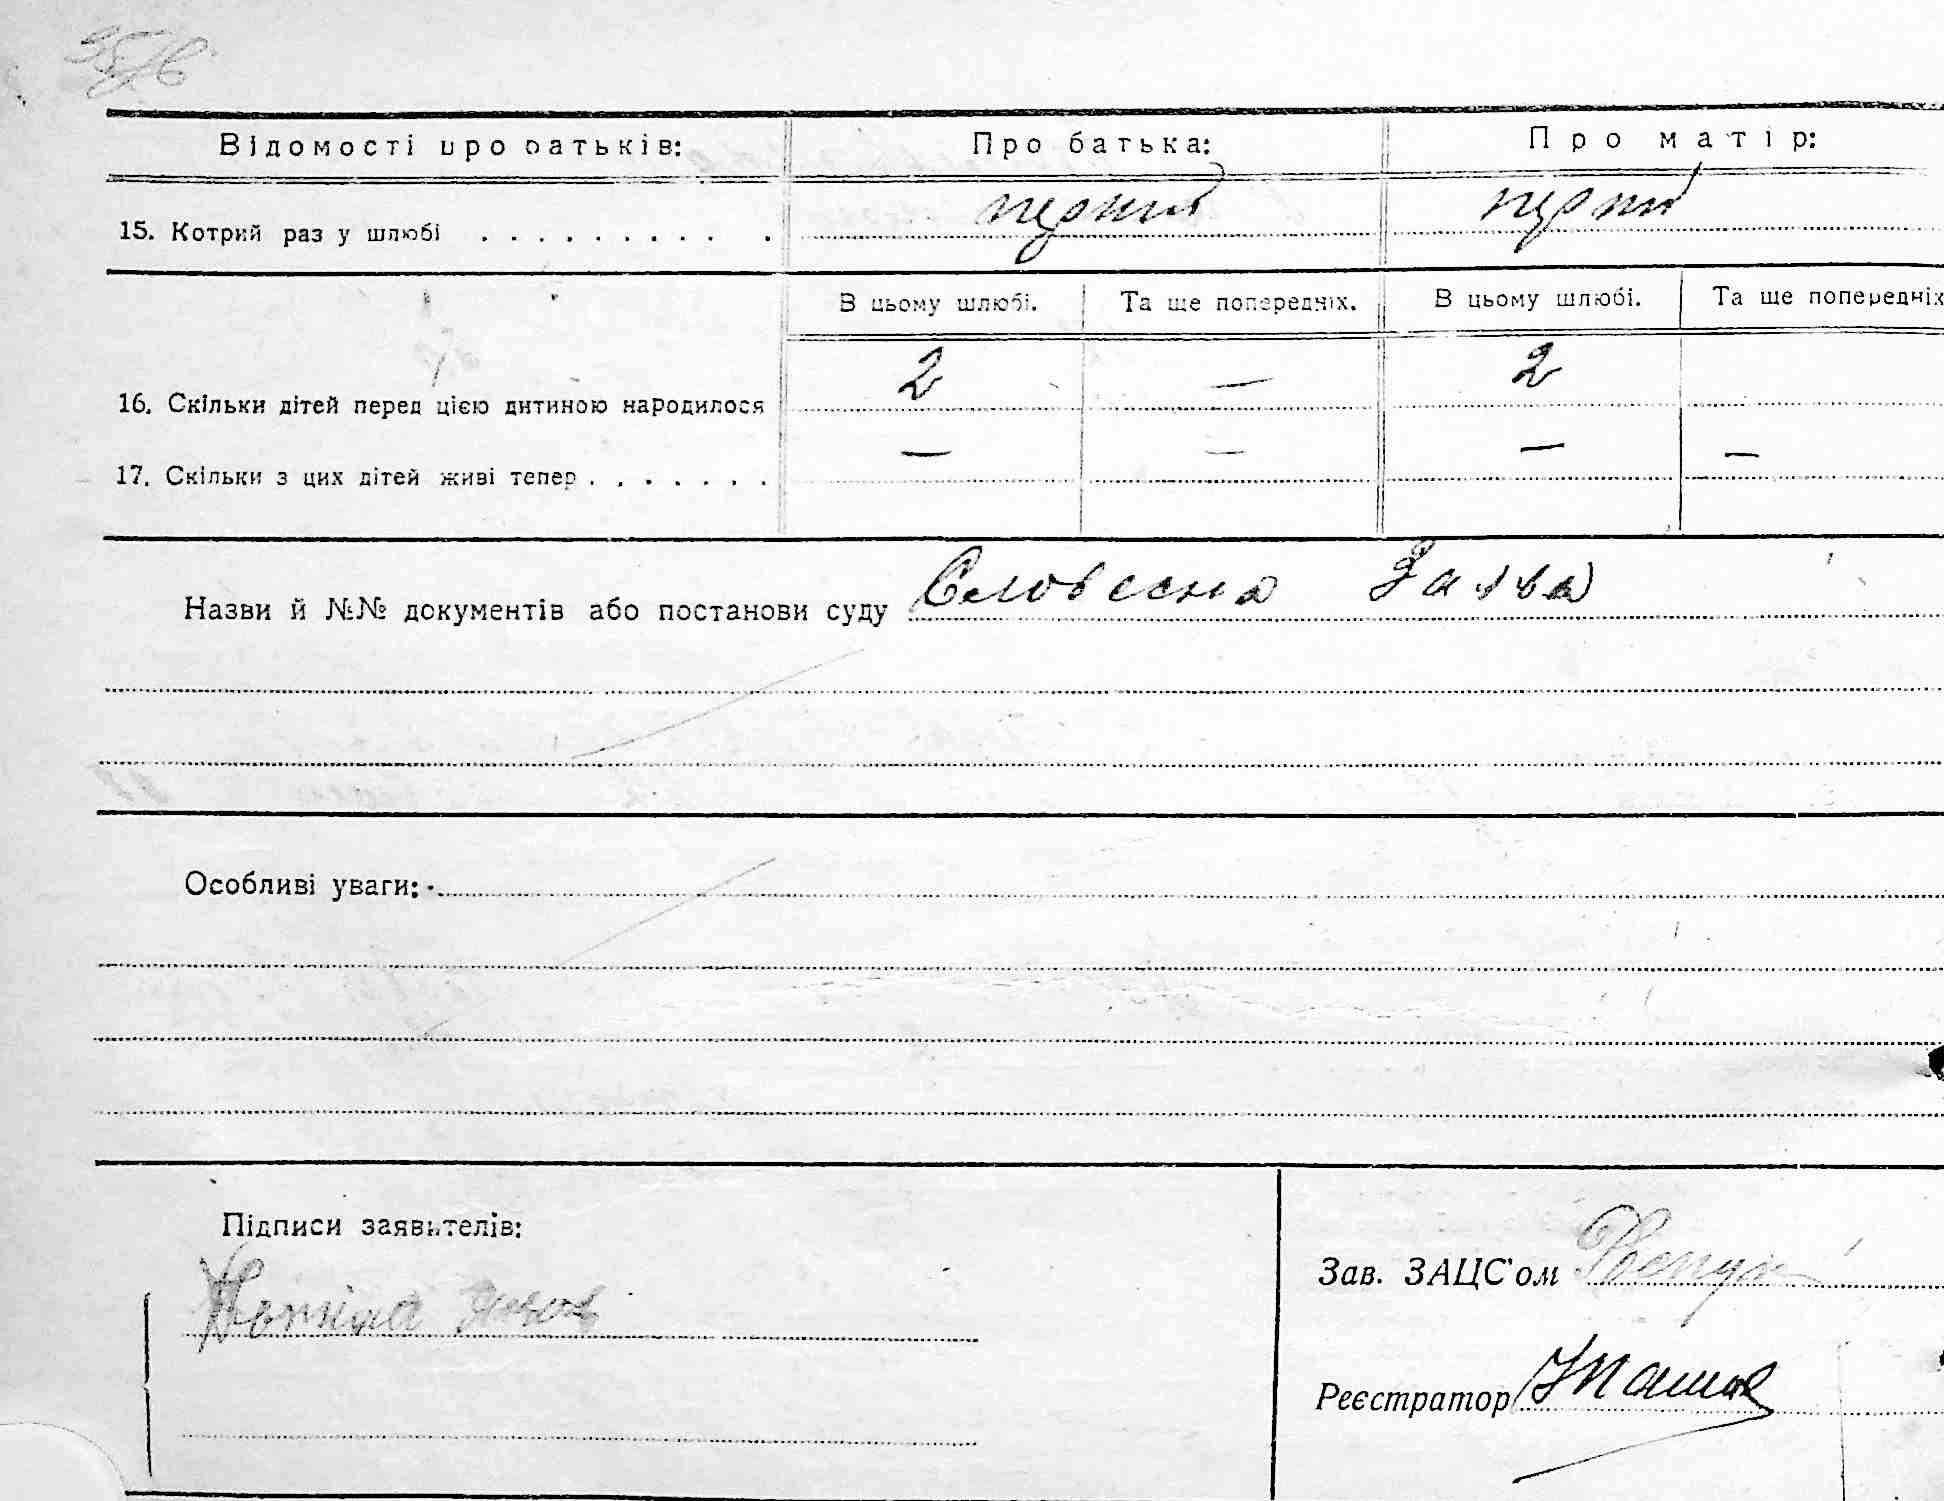 Відомості про батьків: Про батька: Про матір:
15. Котрий раз у шлюбі . . . . . . . . . . перший перший
В цьому шлюбі. Та ще попередніх. В цьому шлюбі. Та ще попередніх
16. Скільки дітей перед цією дитиною народилося 2 — 2
17. Скільки з цих дітей живі тепер . . . . . . . — — — —
Назви й №№ документів або постанови суду Словесна Заява
Особливі уваги:
Підписи заявителів:
Зав. ЗАЦС'ом
Реєстратор